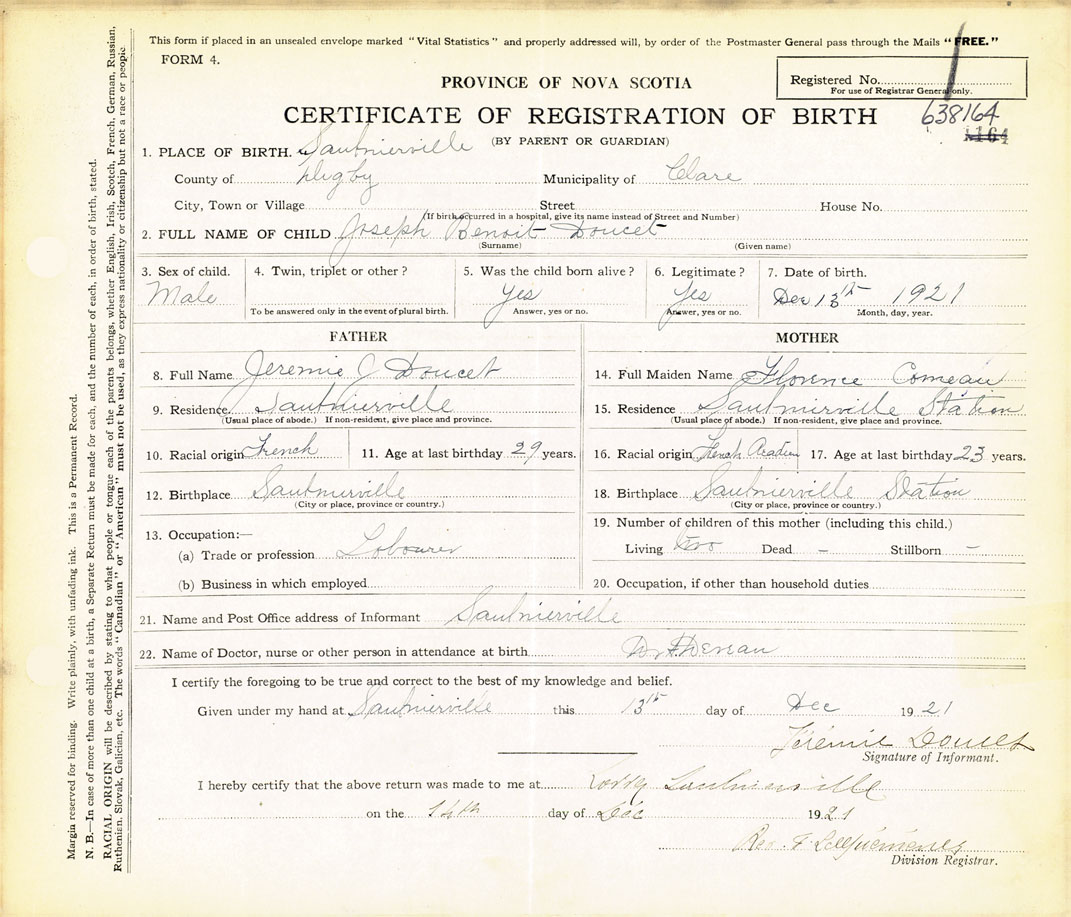 This form if placed in an unsealed envelope marked "Vital Statistics" and properly addressed will, by order of the Postmaster General pass through the Mails "FREE."
FORM 4.
PROVINCE OF NOVA SCOTIA
Registered No.
For use of Registrar General only.
CERTIFICATE OF REGISTRATION OF BIRTH
638164
(BY PARENT OR GUARDIAN)
1. PLACE OF BIRTH. Saulnierville
County of Digby Municipality of Clare
City, Town or Village Street House No.
(If birth occurred in a hospital, give its name instead of Street and Number)
2. FULL NAME OF CHILD Joseph Benoit Doucet
(Surname) (Given name)
3. Sex of child. 4. Twin, triplet or other? 5. Was the child born alive? 6. Legitimate? 7. Date of birth.
Male Yes Yes Dec 13th 1921
To be answered only in the event of plural birth. Answer, yes or no. Answer, yes or no. Month, day, year.
FATHER MOTHER
8. Full Name Jeremie J Doucet 14. Full Maiden Name Florence Comeau
9. Residence Saulnierville 15. Residence Saulnierville Station
(Usual place of abode.) If non-resident, give place and province. (Usual place of abode.) If non-resident, give place and province.
10. Racial origin French 11. Age at last birthday 29 years. 16. Racial origin French Acadien 17. Age at last birthday 23 years.
12. Birthplace Saulnierville 18. Birthplace Saulnierville Station
(City or place, province or country.) (City or place, province or country.)
13. Occupation:— 19. Number of children of this mother (including this child.)
(a) Trade or profession Labourer Living two Dead – Stillborn –
(b) Business in which employed 20. Occupation, if other than household duties
21. Name and Post Office address of Informant Saulnierville
22. Name of Doctor, nurse or other person in attendance at birth Dr
I certify the foregoing to be true and correct to the best of my knowledge and belief.
Given under my hand at Saulnierville this 13th day of Dec 1921
Jérémie Doucet
Signature of Informant.
I hereby certify that the above return was made to me at Saulnierville
on the 14th day of Dec 1921
Rev. F
Division Registrar.
Margin reserved for binding. Write plainly, with unfading ink. This is a Permanent Record.
N. B.—In case of more than one child at a birth, a Separate Return must be made for each, and the number of each, in order of birth, stated.
RACIAL ORIGIN will be described by stating to what people or tongue each of the parents belongs, whether English, Irish, Scotch, French, German, Russian,
Ruthenian, Slovak, Galician, etc. The words "Canadian" or "American" must not be used, as they express nationality or citizenship but not a race or people